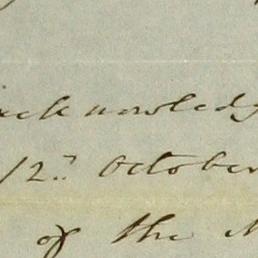 acknowledg
12th October
of the